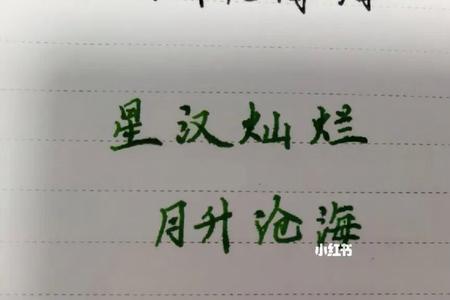 星汉灿烂
月升沧海
小红书